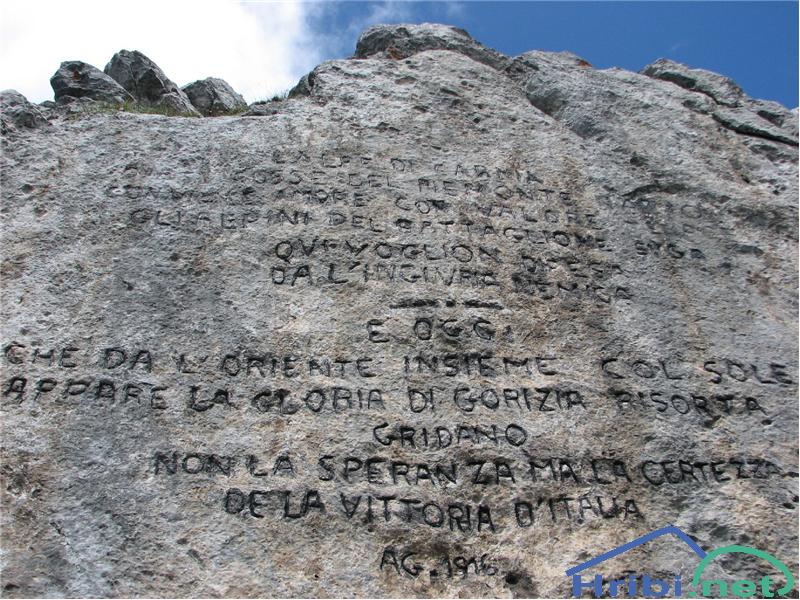 DI CARNIA
DEL PIEMONTE
AMORE CON VALORE
GLI ALPINI DEL BATTAGLIONE SUSA
QUI VOGLION DIFESA
DA L'INGIURIE NEMICA
E OGGI
CHE DA L'ORIENTE INSIEME COL SOLE
APPARE LA GLORIA DI GORIZIA RISORTA
GRIDANO
NON LA SPERANZA MA LA CERTEZZA
DE LA VITTORIA D'ITALIA
AG. 1916
Hribi.net